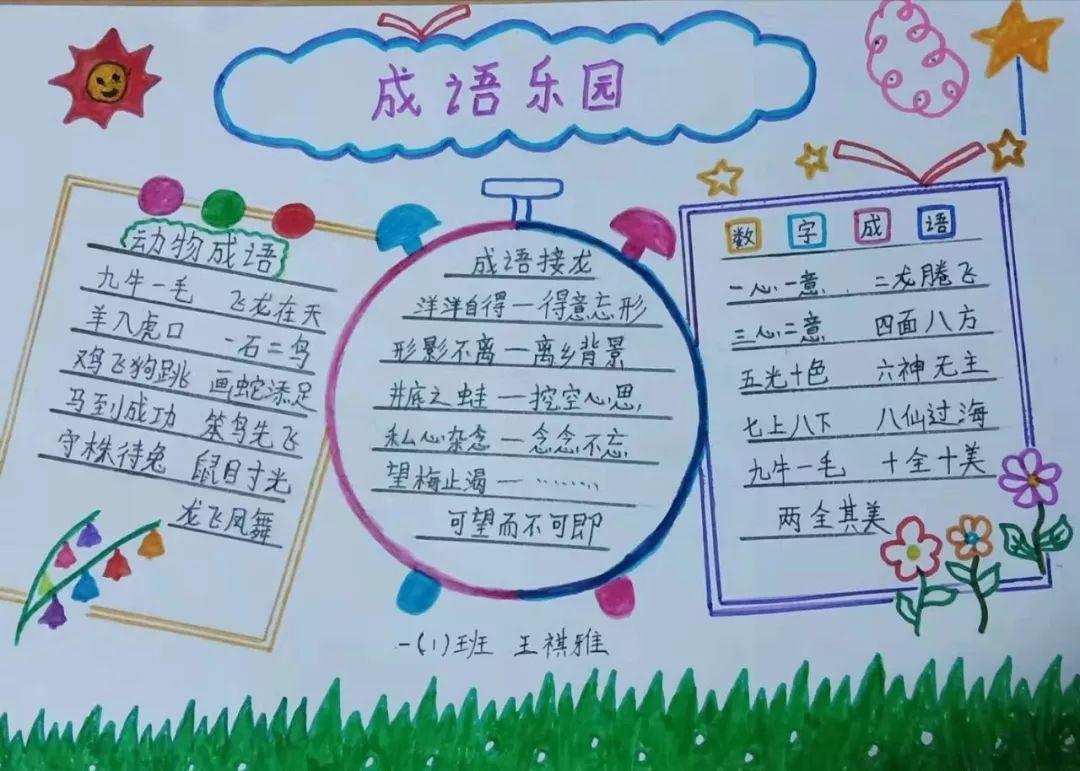 成语乐园
动物成语
九牛一毛 飞龙在天
羊入虎口 一石二鸟
鸡飞狗跳 画蛇添足
马到成功 笨鸟先飞
守株待兔 鼠目寸光
龙飞凤舞
成语接龙
洋洋自得—得意忘形
形影不离—离乡背景
井底之蛙—挖空心思
私心杂念—念念不忘
望梅止渴—………
可望而不可即
数字成语
一心一意 二龙腾飞
三心二意 四面八方
五光十色 六神无主
七上八下 八仙过海
九牛一毛 十全十美
两全其美
一(1)班 王祺雅